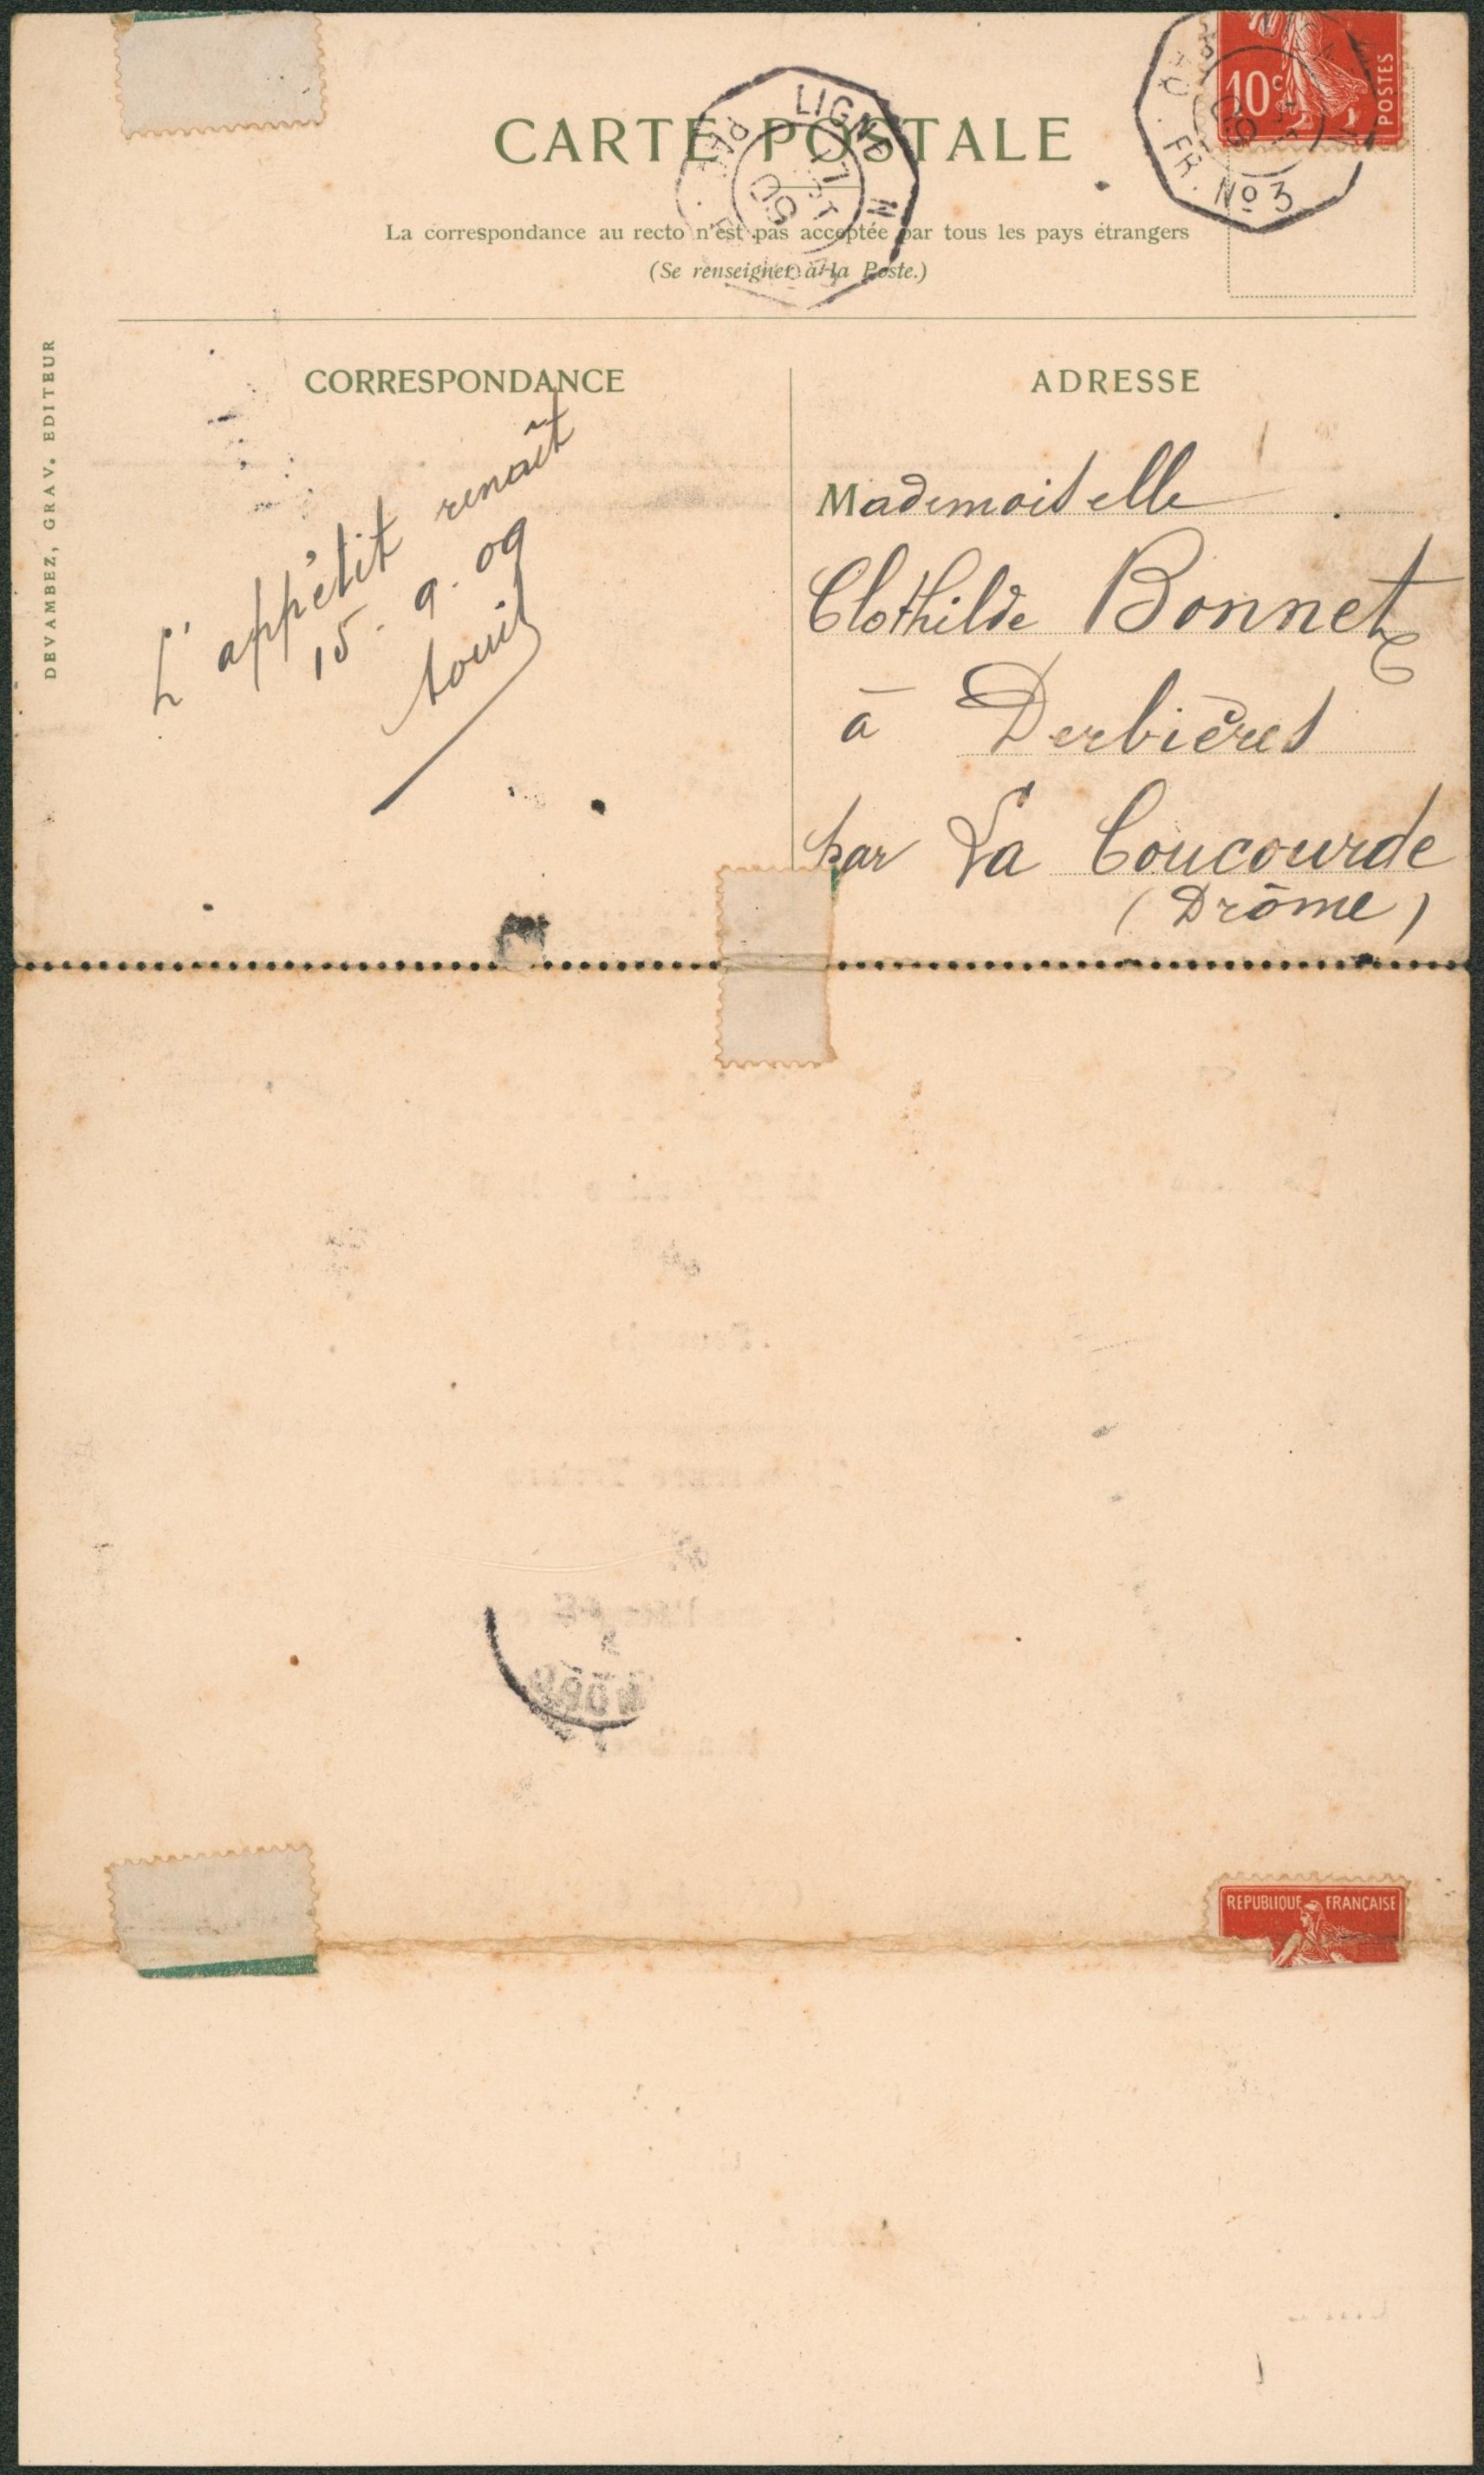 10c
POSTES
FR. No 3
LIGNE N
17
09
CARTE POSTALE
La correspondance au recto n'est pas acceptée par tous les pays étrangers
(Se renseigner à la Poste.)
DEVAMBEZ, GRAV. EDITEUR
CORRESPONDANCE
L'appétit renaît
15. 9. 09
ADRESSE
Mademoiselle
Clothilde Bonnet
à Derbières
par La Coucourde
(Drôme)
REPUBLIQUE FRANÇAISE